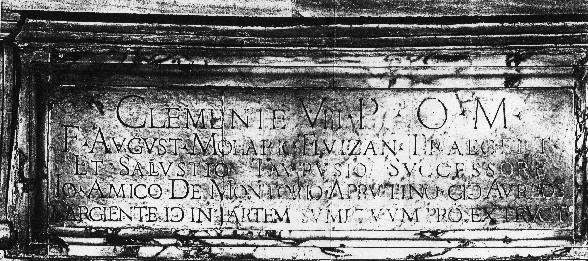 CLEMENTE VIII P O M
F. AVGVST. MOLARIO
ET SALVSTIO TARVSIO SVCCESSORE
IO AMICO DE MONTORIO APRVTINO CIↃ AVREOS
ARGENTE IↃ IN PARTEM SVMPTVVM PRO EXTRVCT